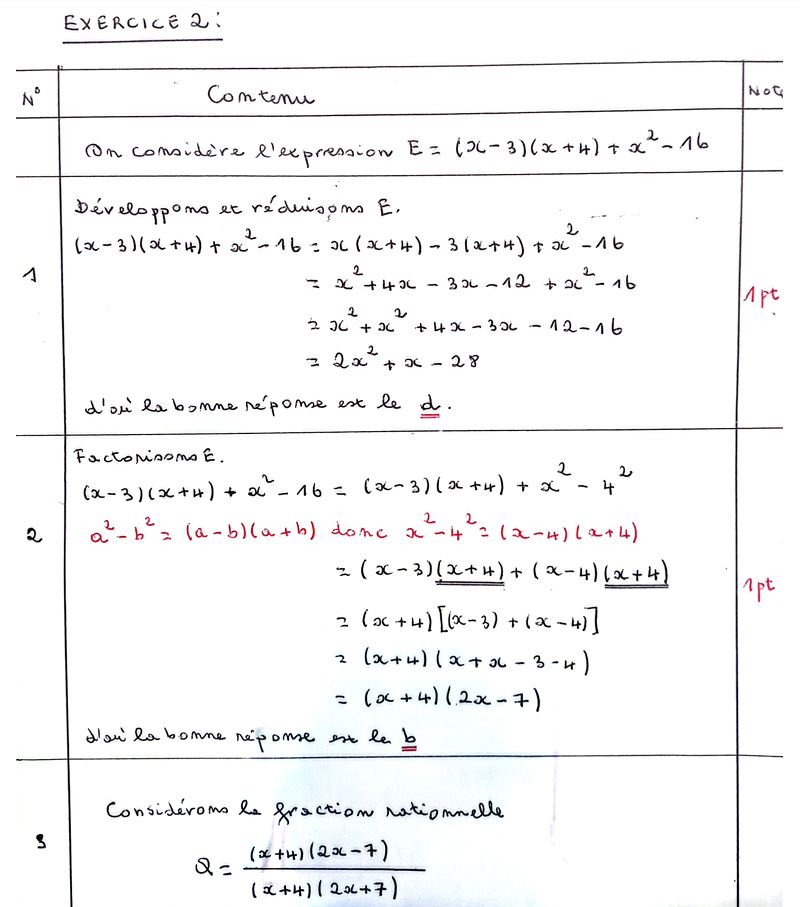 EXERCICE 2:
N° Contenu Note
On considère l'expression E = (x-3)(x+4) + x² - 16
Développons et réduisons E.
(x-3)(x+4) + x² - 16 = x(x+4) - 3(x+4) + x² - 16
= x² + 4x - 3x - 12 + x² - 16
1
1pt
= x² + x² + 4x - 3x - 12 - 16
= 2x² + x - 28
d'où la bonne réponse est le d.
Factorisons E.
(x-3)(x+4) + x² - 16 = (x-3)(x+4) + x² - 4²
2 a² - b² = (a-b)(a+b) donc x² - 4² = (x-4)(x+4)
= (x-3)(x+4) + (x-4)(x+4)
1pt
= (x+4)[(x-3) + (x-4)]
= (x+4)(x+x-3-4)
= (x+4)(2x-7)
d'où la bonne réponse est le b
Considérons la fraction rationnelle
3
Q = (x+4)(2x-7)
(x+4)(2x+7)